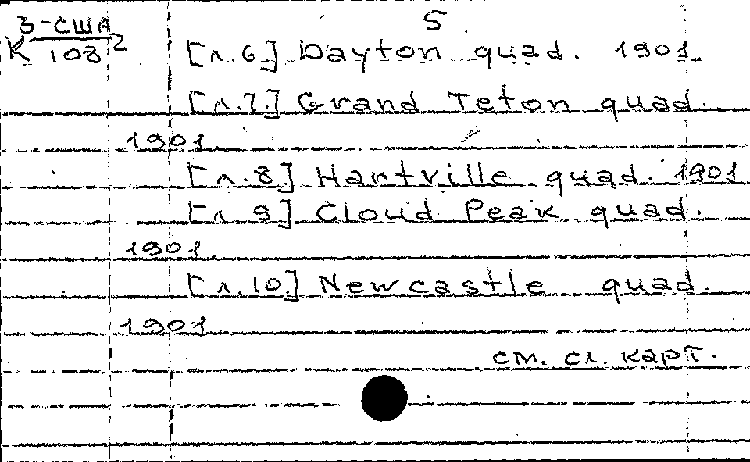 3-США 5
К 108 2 [л.6] Dayton quad. 1901.
[л.7.] Grand Teton quad.
1901.
[л.8] Hartville quad. 1901
[л 9] Cloud Peak quad.
1901.
[л.10] Newcastle quad.
1901
см. сл. карт.